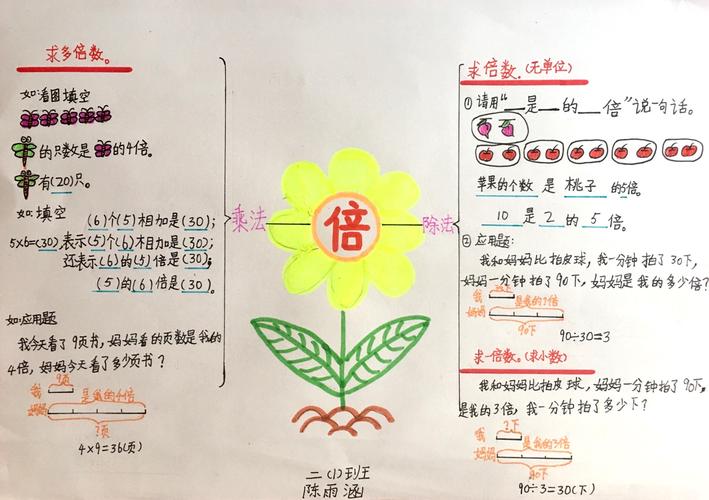 求多倍数。
如:看图填空
的只数是的4倍。
有(20)只。
如:填空
(6)个(5)相加是(30);
5×6=(30)表示(5)个(6)相加是(30);
还表示(6)的(5)倍是(30);
(5)的(6)倍是(30)。
如:应用题
我今天看了9页书,妈妈看的页数是我的
4倍,妈妈今天看了多少页书?
9页
我
是我的4倍
妈妈
?页
4×9=36(页)
乘法
倍
除法
二(1)班
陈雨涵
求倍数。(无单位)
①请用“__是__的__倍”说一句话。
苹果的个数 是 桃子 的5倍。
10 是 2 的 5 倍。
②应用题:
我和妈妈比拍皮球,我一分钟拍了30下,
妈妈一分钟拍了90下,妈妈是我的多少倍?
我
妈妈
是我的?倍
90下
90÷30=3
求一倍数。(求小数)
我和妈妈比拍皮球,妈妈一分钟拍了90下,
是我的3倍,我一分钟拍了多少下?
?下
我
是我的3倍
妈妈
90下
90÷3=30(下)